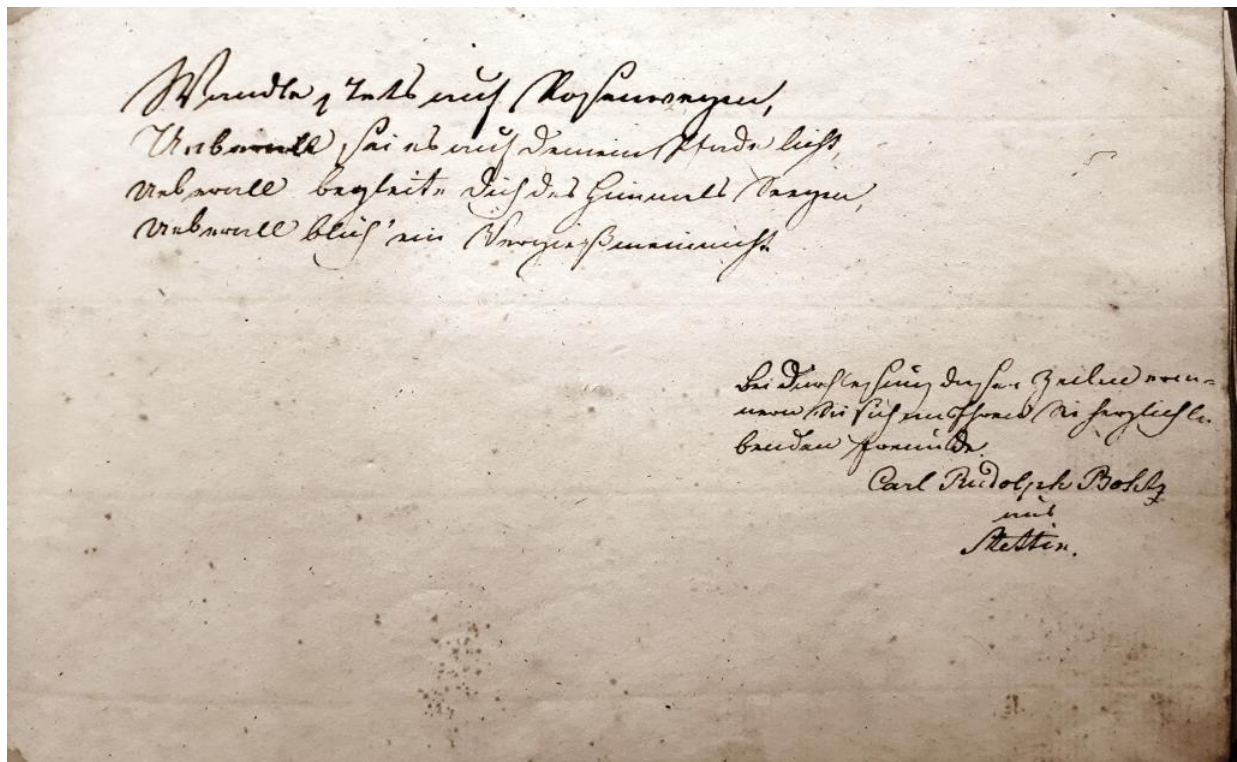 Wandle stets auf Rosenwegen,
Ueberall sei es auf deinem Pfade licht,
Ueberall begleite dich des Himmels Seegen,
Ueberall blüh' ein Vergißmeinnicht.
Bei Durchlesung dieser Zeilen erin-
nern Sie sich an Ihren Sie herzlich lie-
benden Freunde.
Carl Rudolph Bohtz
aus
Stettin.